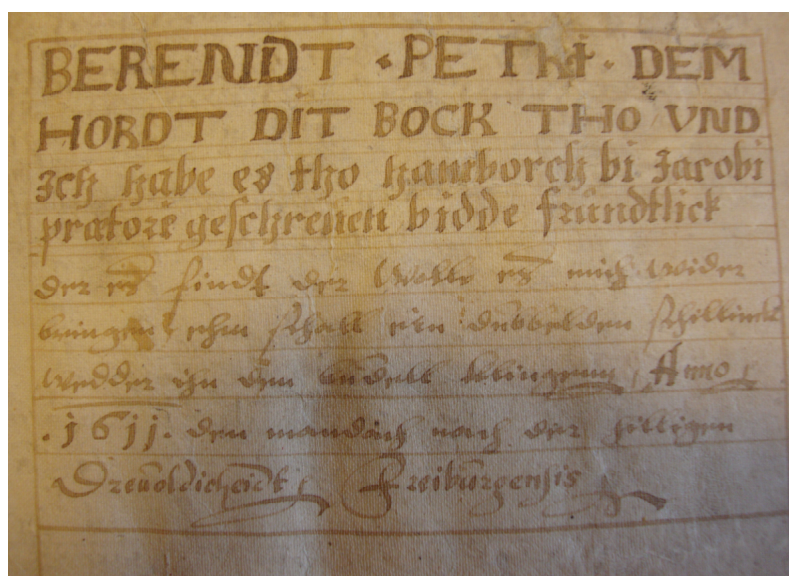 BERENDT · PETRI · DEM
HORDT DIT BOCK THO VND
Ich habe es tho hamborch bi Jacobi
pratore geschreuen bidde fründtlick
der es findt der wolle es mich wider
bringen ehm schall ein dubbelden schillinck
wedder ihn den büdell klingenn, Anno
.1611. den mandach nach der hilligen
Dreuoldicheidt, Freiburgensis